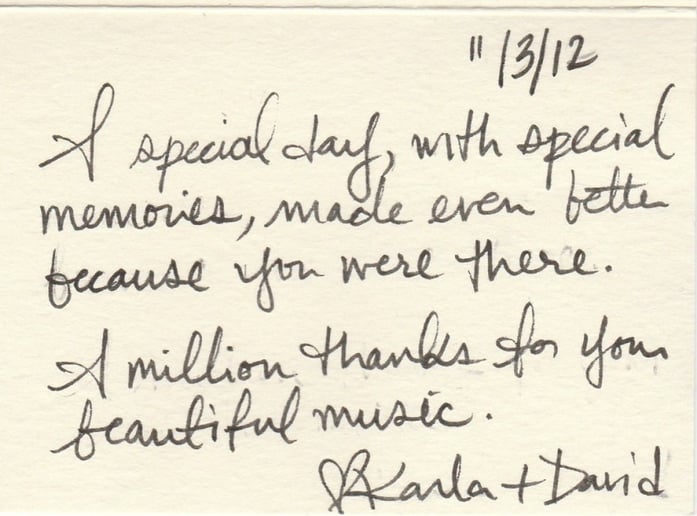 11/3/12
A special day, with special
memories, made even better
because you were there.
A million thanks for your
beautiful music.
♡Karla + David